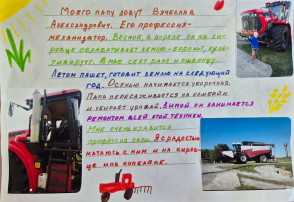 Моего папу зовут Вячеслав
Александрович. Его профессия-
механизатор. Весной, в апреле он на ки-
ровце обрабатывает землю-боронит, куль-
тивирует. В мае сеет рапс и пшеницу.
Летом пашет, готовит землю на следующий
год. Осенью начинается уборочная.
Папа пересаживается на комбайн
и убирает урожай. Зимой он занимается
ремонтом всей этой техники.
Мне очень нравится
профессия папы. Я с радостью
катаюсь с ним и на киров-
це и на комбайне.